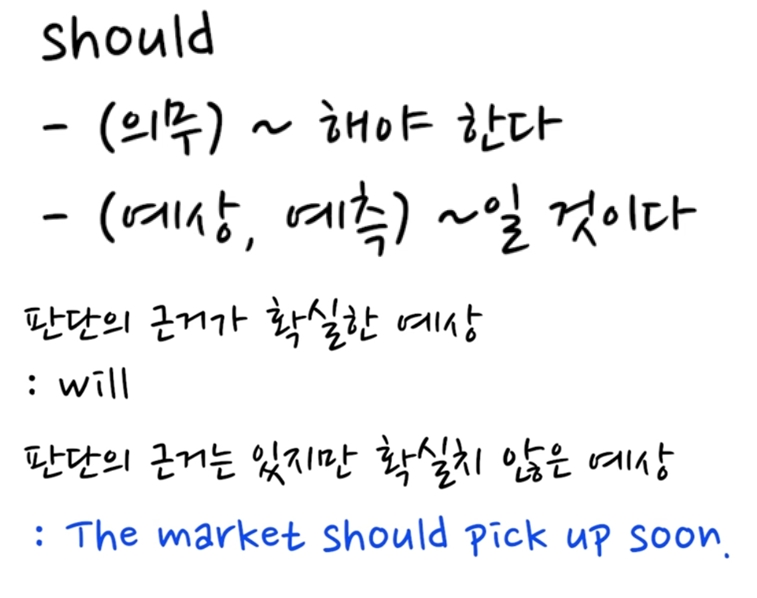 should
- (의무) ~ 해야 한다
- (예상, 예측) ~일 것이다
판단의 근거가 확실한 예상
: will
판단의 근거는 있지만 확실치 않은 예상
: The market should pick up soon.